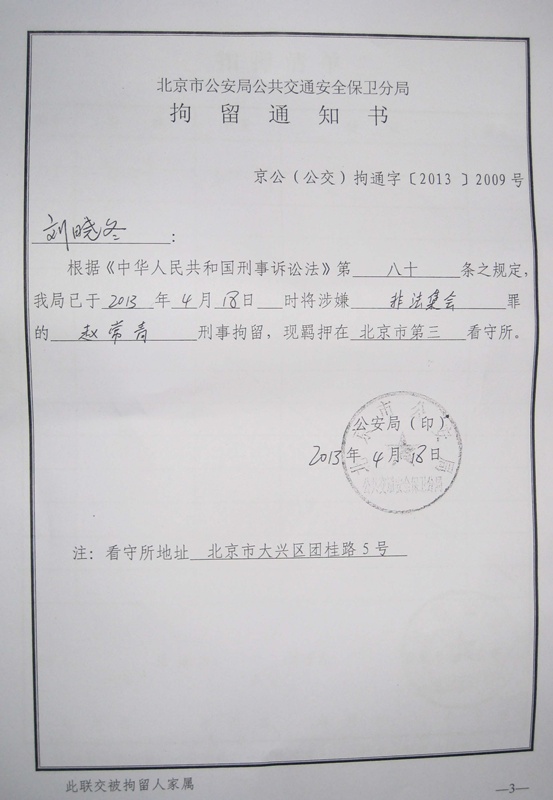 北京市公安局公共交通安全保卫分局
拘留通知书
京公（公交）拘通字〔2013〕2009号
刘晓冬：
根据《中华人民共和国刑事诉讼法》第 八十 条之规定，
我局已于 2013 年 4 月 18 日 时将涉嫌 非法集会 罪
的 赵常青 刑事拘留，现羁押在 北京市第三 看守所。
公安局（印）
2013年 4 月 18日
注：看守所地址 北京市大兴区团桂路5号
此联交被拘留人家属
—3—